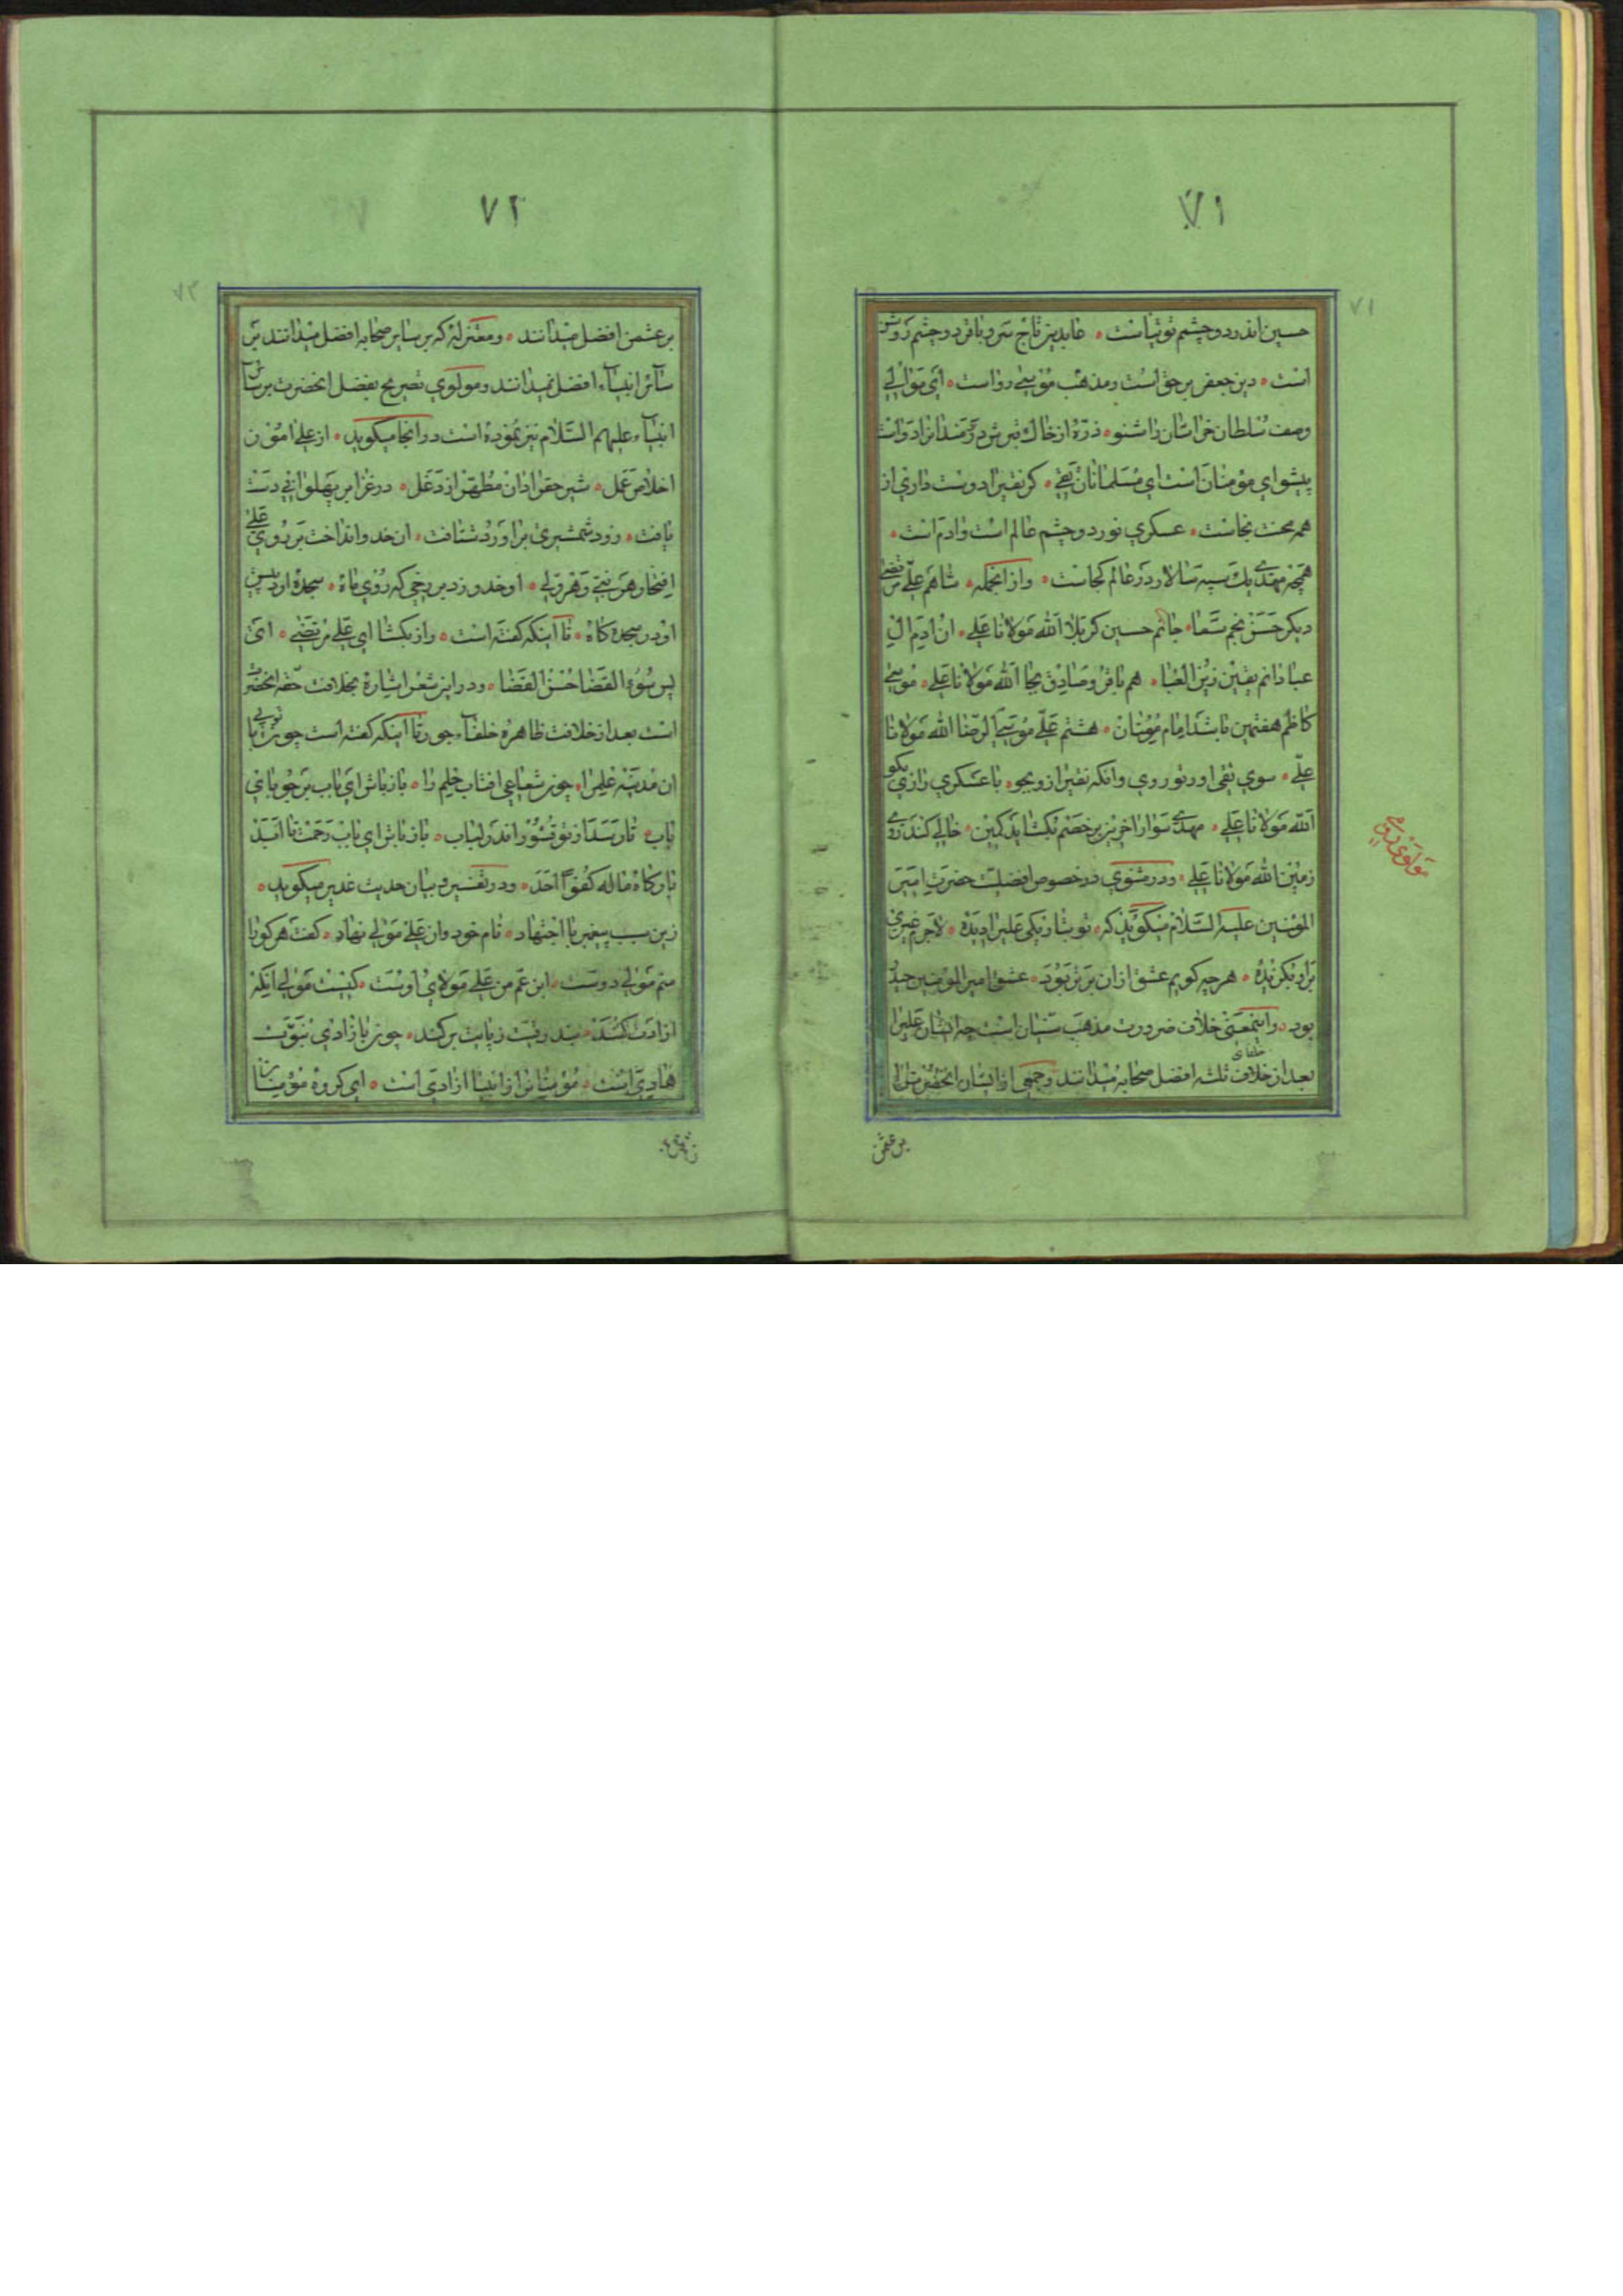 ٧١
٧١
حسین اندر دو چشم توتیاست ٭ عابدین تاج سر و باقر دو چشم روشن
است ٭ دین جعفر بر حق است و مذهب موسی رواست ٭ ای موالی
وصف سلطان خراسان را شنو ٭ ذرّهٔ از خاک قبرش دردمندانرا دواست
پیشوای مؤمنان است ای مسلمانان تقی ٭ گر نقی را دوست داری از
همه محنت نجاست ٭ عسکری نور دو چشم عالم است و آدم است ٭
همچه مهدی یک سپه سالار در عالم کجاست ٭ و از آنجمله ٭ شاهم علی مرتضی
دیگر حسن نجم سما ٭ جانم حسین کربلا الله مولانا علی ٭ آن آدم آل
عبا دانم یقین زین العبا ٭ هم باقر و صادق بجا الله مولانا علی ٭ موسی
کاظم هفتمین باشد امام مؤمنان ٭ هشتم علی موسی الرضا الله مولانا
علی ٭ سوی تقی اور تو روی وانکه نقی را زو بجو ٭ با عسکری رازی بگو
الله مولانا علی ٭ مهدی سوار آخرین بر خصم بگشاید کمین ٭ خالی کند روی
زمین الله مولانا علی ٭ و در مثنوی در خصوص افضلیت حضرت امیر
المؤمنین علیه السلام میگوید که ٭ تو بتاریکی علی را دیدهٔ ٭ لاجرم غیری
برو بگزیدهٔ ٭ هر چه گویم عشق از آن برتر بود ٭ عشق امیر المؤمنین حیدر
بود ٭ و اینمعنی خلاف ضرورت مذهب سنیان است چه ایشان علی را
بعد از خلفای ثلثه افضل صحابه میدانند و جمعی از ایشان آنحضرت را
بر عثمن
مولوی رومی
٧٢
٧٢
بر عثمن افضل میدانند ٭ و معتزله که بر سایر صحابه افضل میدانند بر
سائر انبیاء افضل نمیدانند و مولوی تصریح بفضل آنحضرت بر سائر
انبیاء علیهم السلام نیز نموده است در آنجا میگوید ٭ از علی آموز
اخلاص عمل ٭ شیر حق را دان مطهر از دغل ٭ در غزا بر پهلوانی دست
یافت ٭ زود شمشیری برآورد شتافت ٭ آن خدو انداخت بر روی علی
افتخار هر نبی و هر ولی ٭ او خدو زد بر رخی که روی ماه ٭ سجده آرد پیش
او در سجده گاه ٭ تا آنکه گفته است ٭ راز بگشا ای علی مرتضی ٭ ای
پس سوء القضا حسن القضا ٭ و در این شعر اشاره بخلافت حقه آنحضرت
است بعد از خلافت ظاهره خلفاء جور تا آنکه گفته است چون تو بابی
آن مدینه علم را ٭ چون شعاعی آفتاب حلم را ٭ باز باش ای باب بر جویای
باب ٭ تا رسد از تو قشور اندر لباب ٭ باز باش ای باب رحمت تا ابد
بارگاه ما له کفوا احد ٭ و در تفسیر و بیان حدیث غدیر میگوید ٭
زین سبب پیغمبر با اجتهاد ٭ نام خود وان علی مولی نهاد ٭ گفت هر کو را
منم مولی و دوست ٭ ابن عم من علی مولای اوست ٭ کیست مولی آنکه
آزادت کند ٭ بند رقیت ز پایت بر کند ٭ چون بآزادی نبوت
هادی است ٭ مؤمنانرا از انبیا آزادی است ٭ ای گروه مؤمنان